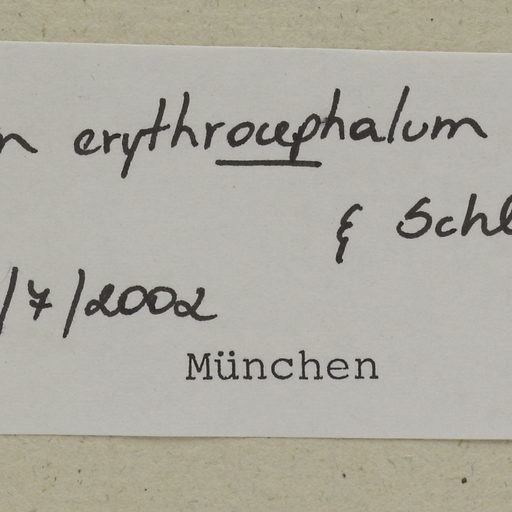 n erythrocephalum
& Schl
/7/2002
München